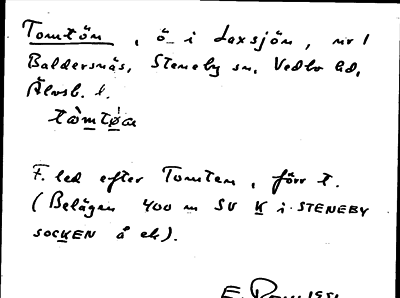 Tomtön, ö i Laxsjön, nr 1
Baldersnäs, Steneby sn, Vedbo hd,
Älvsb. l.
tòmtøa
F. led efter Tomten, förr t.
(Belägen 400 m SV K i STENEBY
SOCKEN å ek).
E.